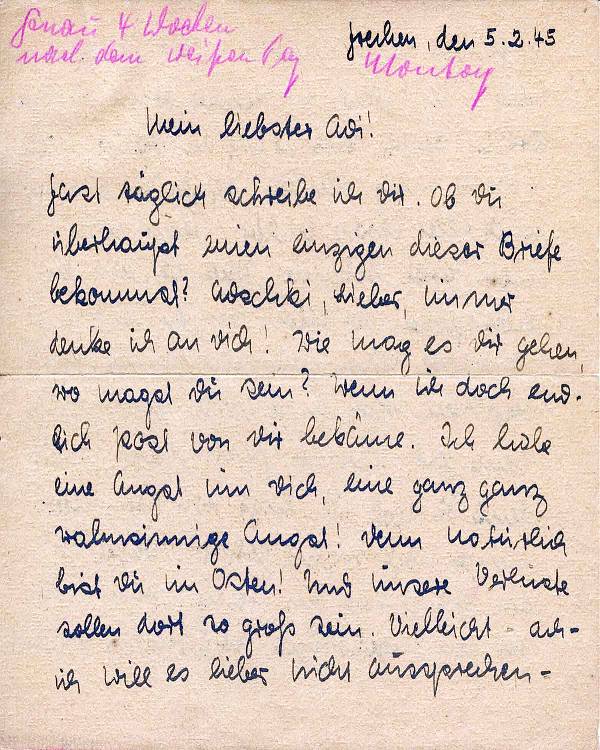 Genau 4 Wochen
nach dem weißen
Frechen, den 5.2.45
Montag
Mein liebster Adi!
Fast täglich schreibe ich dir. Ob du
überhaupt einen einzigen dieser Briefe
bekommst? Adschki, Lieber, immer
denke ich an dich! Wie mag es dir gehen,
wo magst du sein? Wenn ich doch end-
lich Post von dir bekäme. Ich habe
eine Angst um dich, eine ganz ganz
wahnsinnige Angst! Denn natürlich
bist du im Osten! Und unsere Verluste
sollen dort so groß sein. Vielleicht - ach -
ich will es lieber nicht aussprechen -